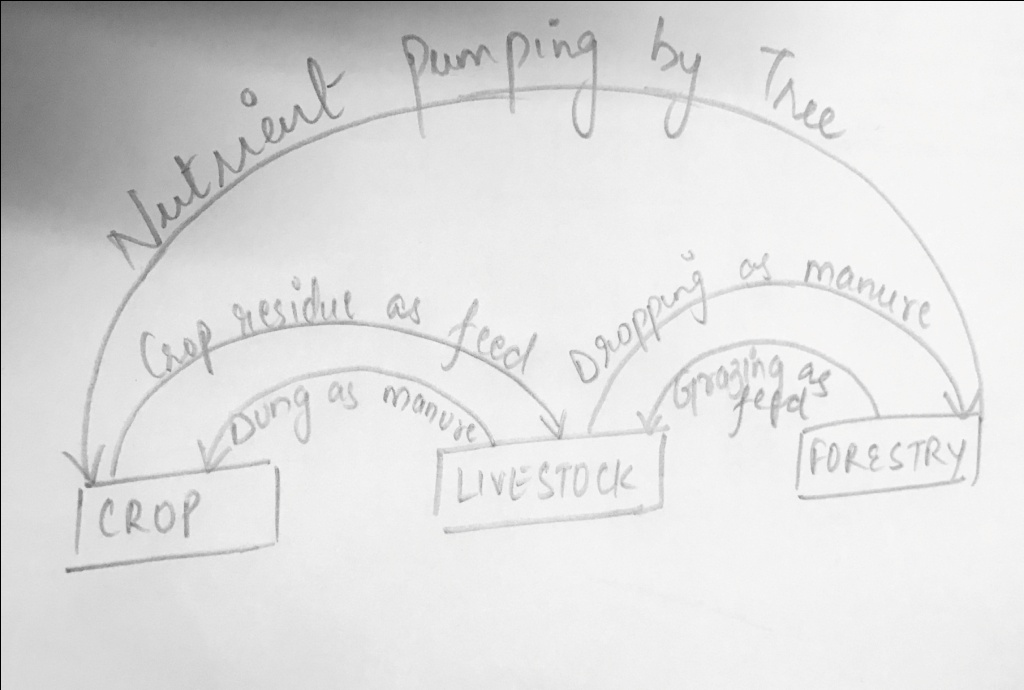 Nutrient Pumping by Tree
Crop residue as feed
Dung as manure
Dropping as manure
Grazing as
feed
CROP
LIVESTOCK
FORESTRY